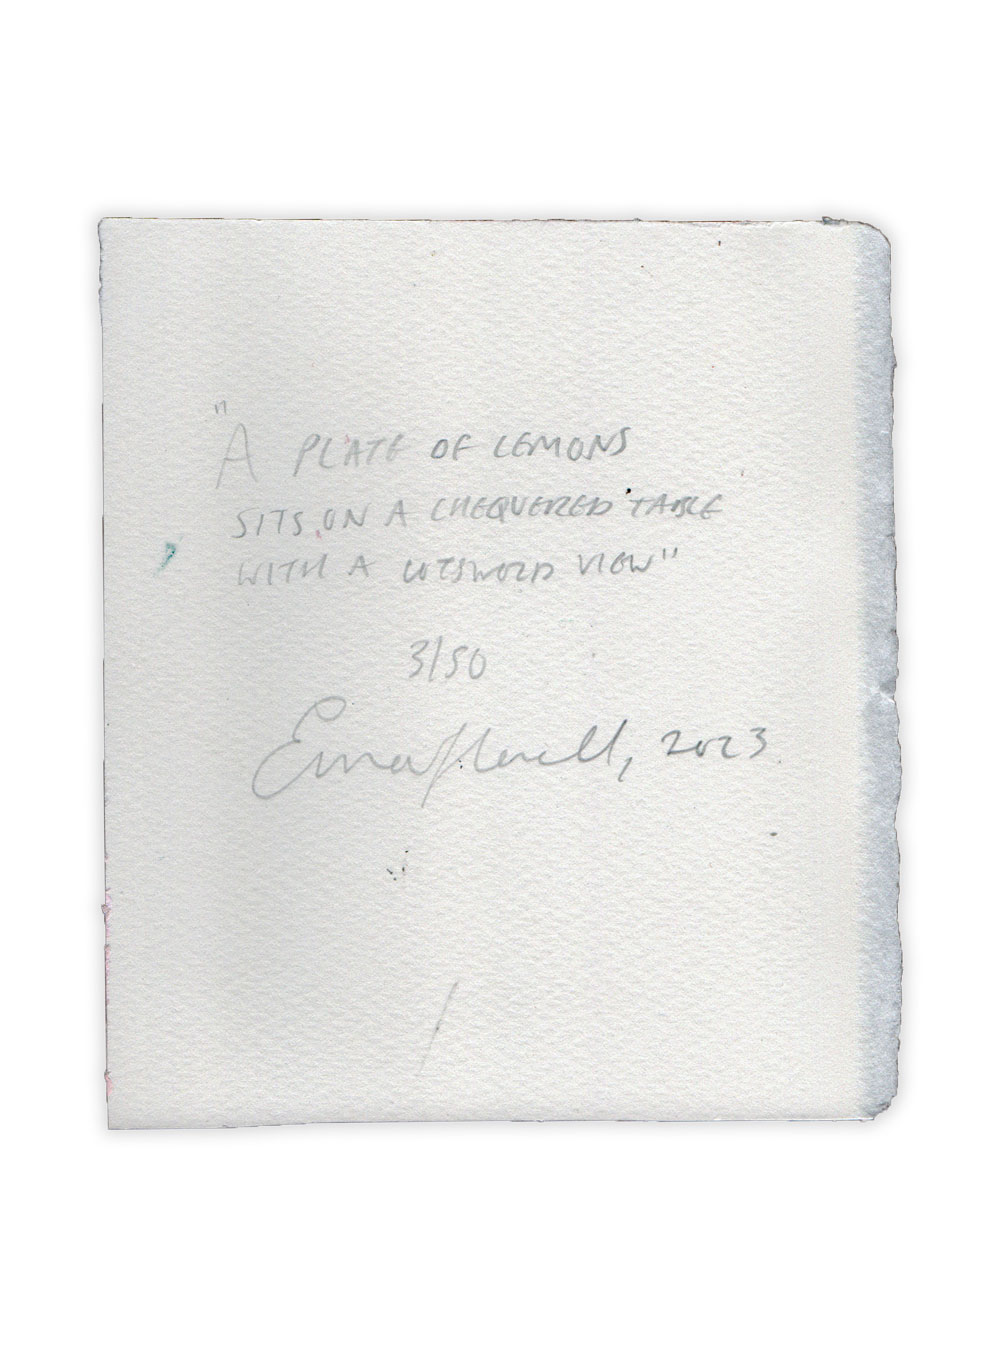 "A PLATE OF LEMONS
SITS ON A CHEQUERED TABLE
WITH A COTSWOLD VIEW"
3/50
2023